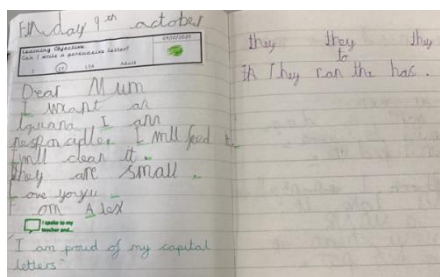 Friday 9th october
09/10/2020
Learning Objective:
Can I write a persuasive letter?
I
LSA
Adult
Dear Mum
I want an
Iguana I am
responsible. I will feed it.
I will clean it.
they are small.
love you
From Alex
I spoke to my
teacher and...
I am proud of my capital
letters
they they they
to
they can the has.